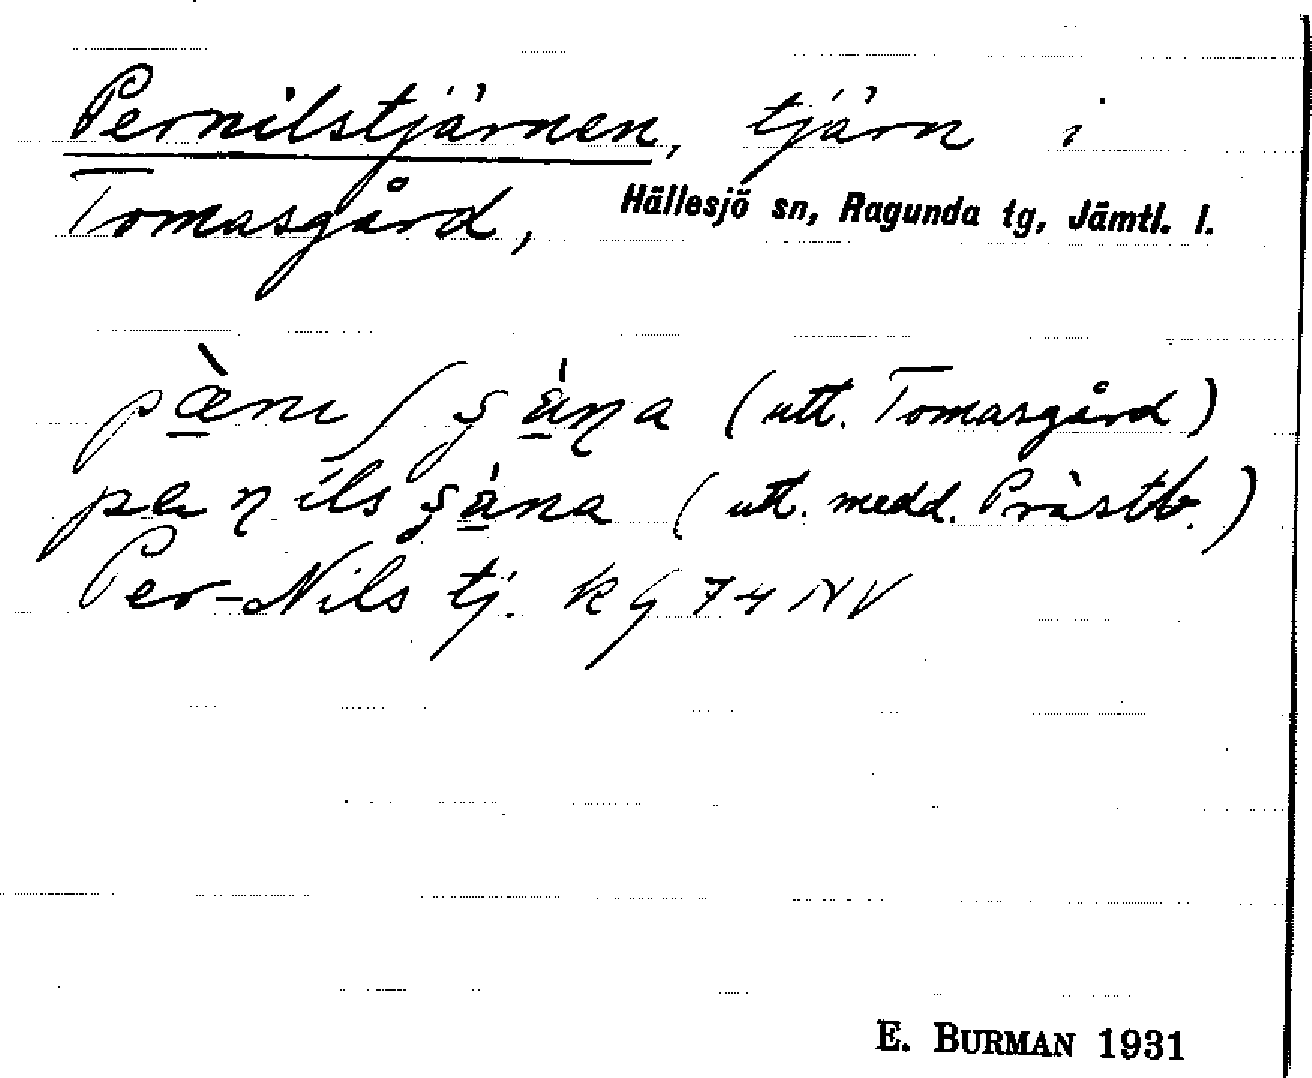 Pernilstjärnen, tjärn i
Tomasgård, Hällesjö sn, Ragunda tg, Jämtl. l.
(utt. Tomasgård)
(utt. medd. Prästb.)
Per-Nils tj. kG 74 NV
E. BURMAN 1931